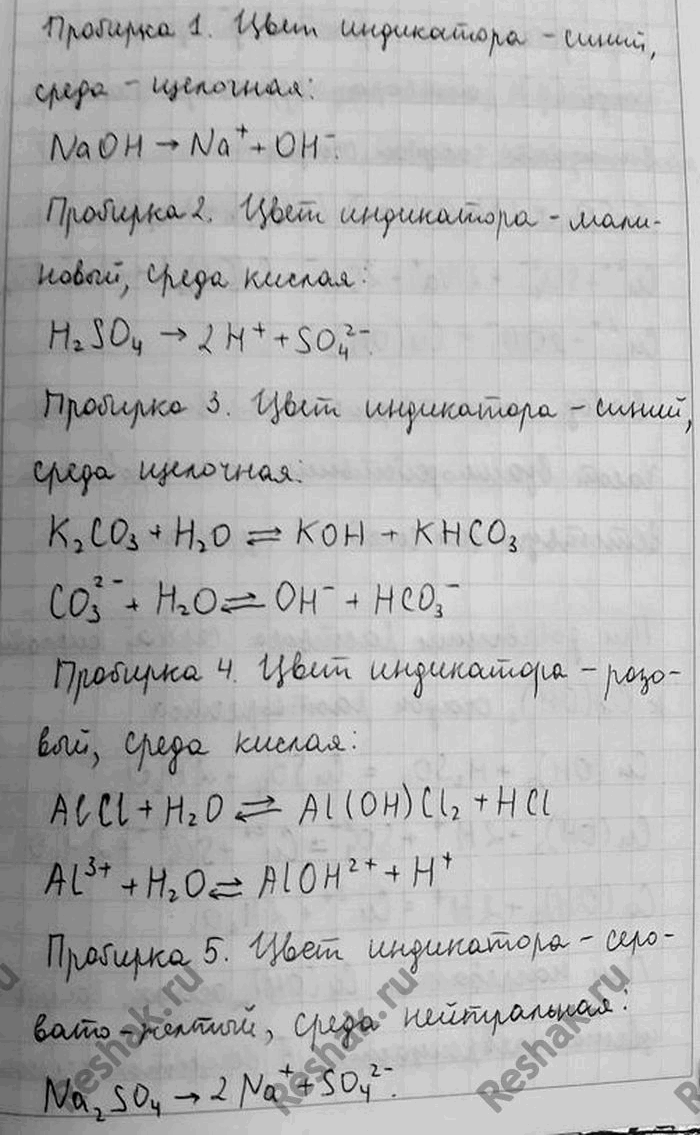 Пробирка 1. Цвет индикатора - синий,
среда - щелочная:
NaOH → Na⁺ + OH⁻.
Пробирка 2. Цвет индикатора - мали-
новый, среда кислая:
H₂SO₄ → 2H⁺ + SO₄²⁻.
Пробирка 3. Цвет индикатора - синий,
среда щелочная:
K₂CO₃ + H₂O ⇌ KOH + KHCO₃
CO₃²⁻ + H₂O ⇌ OH⁻ + HCO₃⁻
Пробирка 4. Цвет индикатора - розо-
вый, среда кислая:
AlCl + H₂O ⇌ Al(OH)Cl₂ + HCl
Al³⁺ + H₂O ⇌ AlOH²⁺ + H⁺
Пробирка 5. Цвет индикатора - серо-
вато-желтый, среда нейтральная:
Na₂SO₄ → 2Na⁺ + SO₄²⁻.
Reshak.ru
Reshak.ru
Reshak.ru